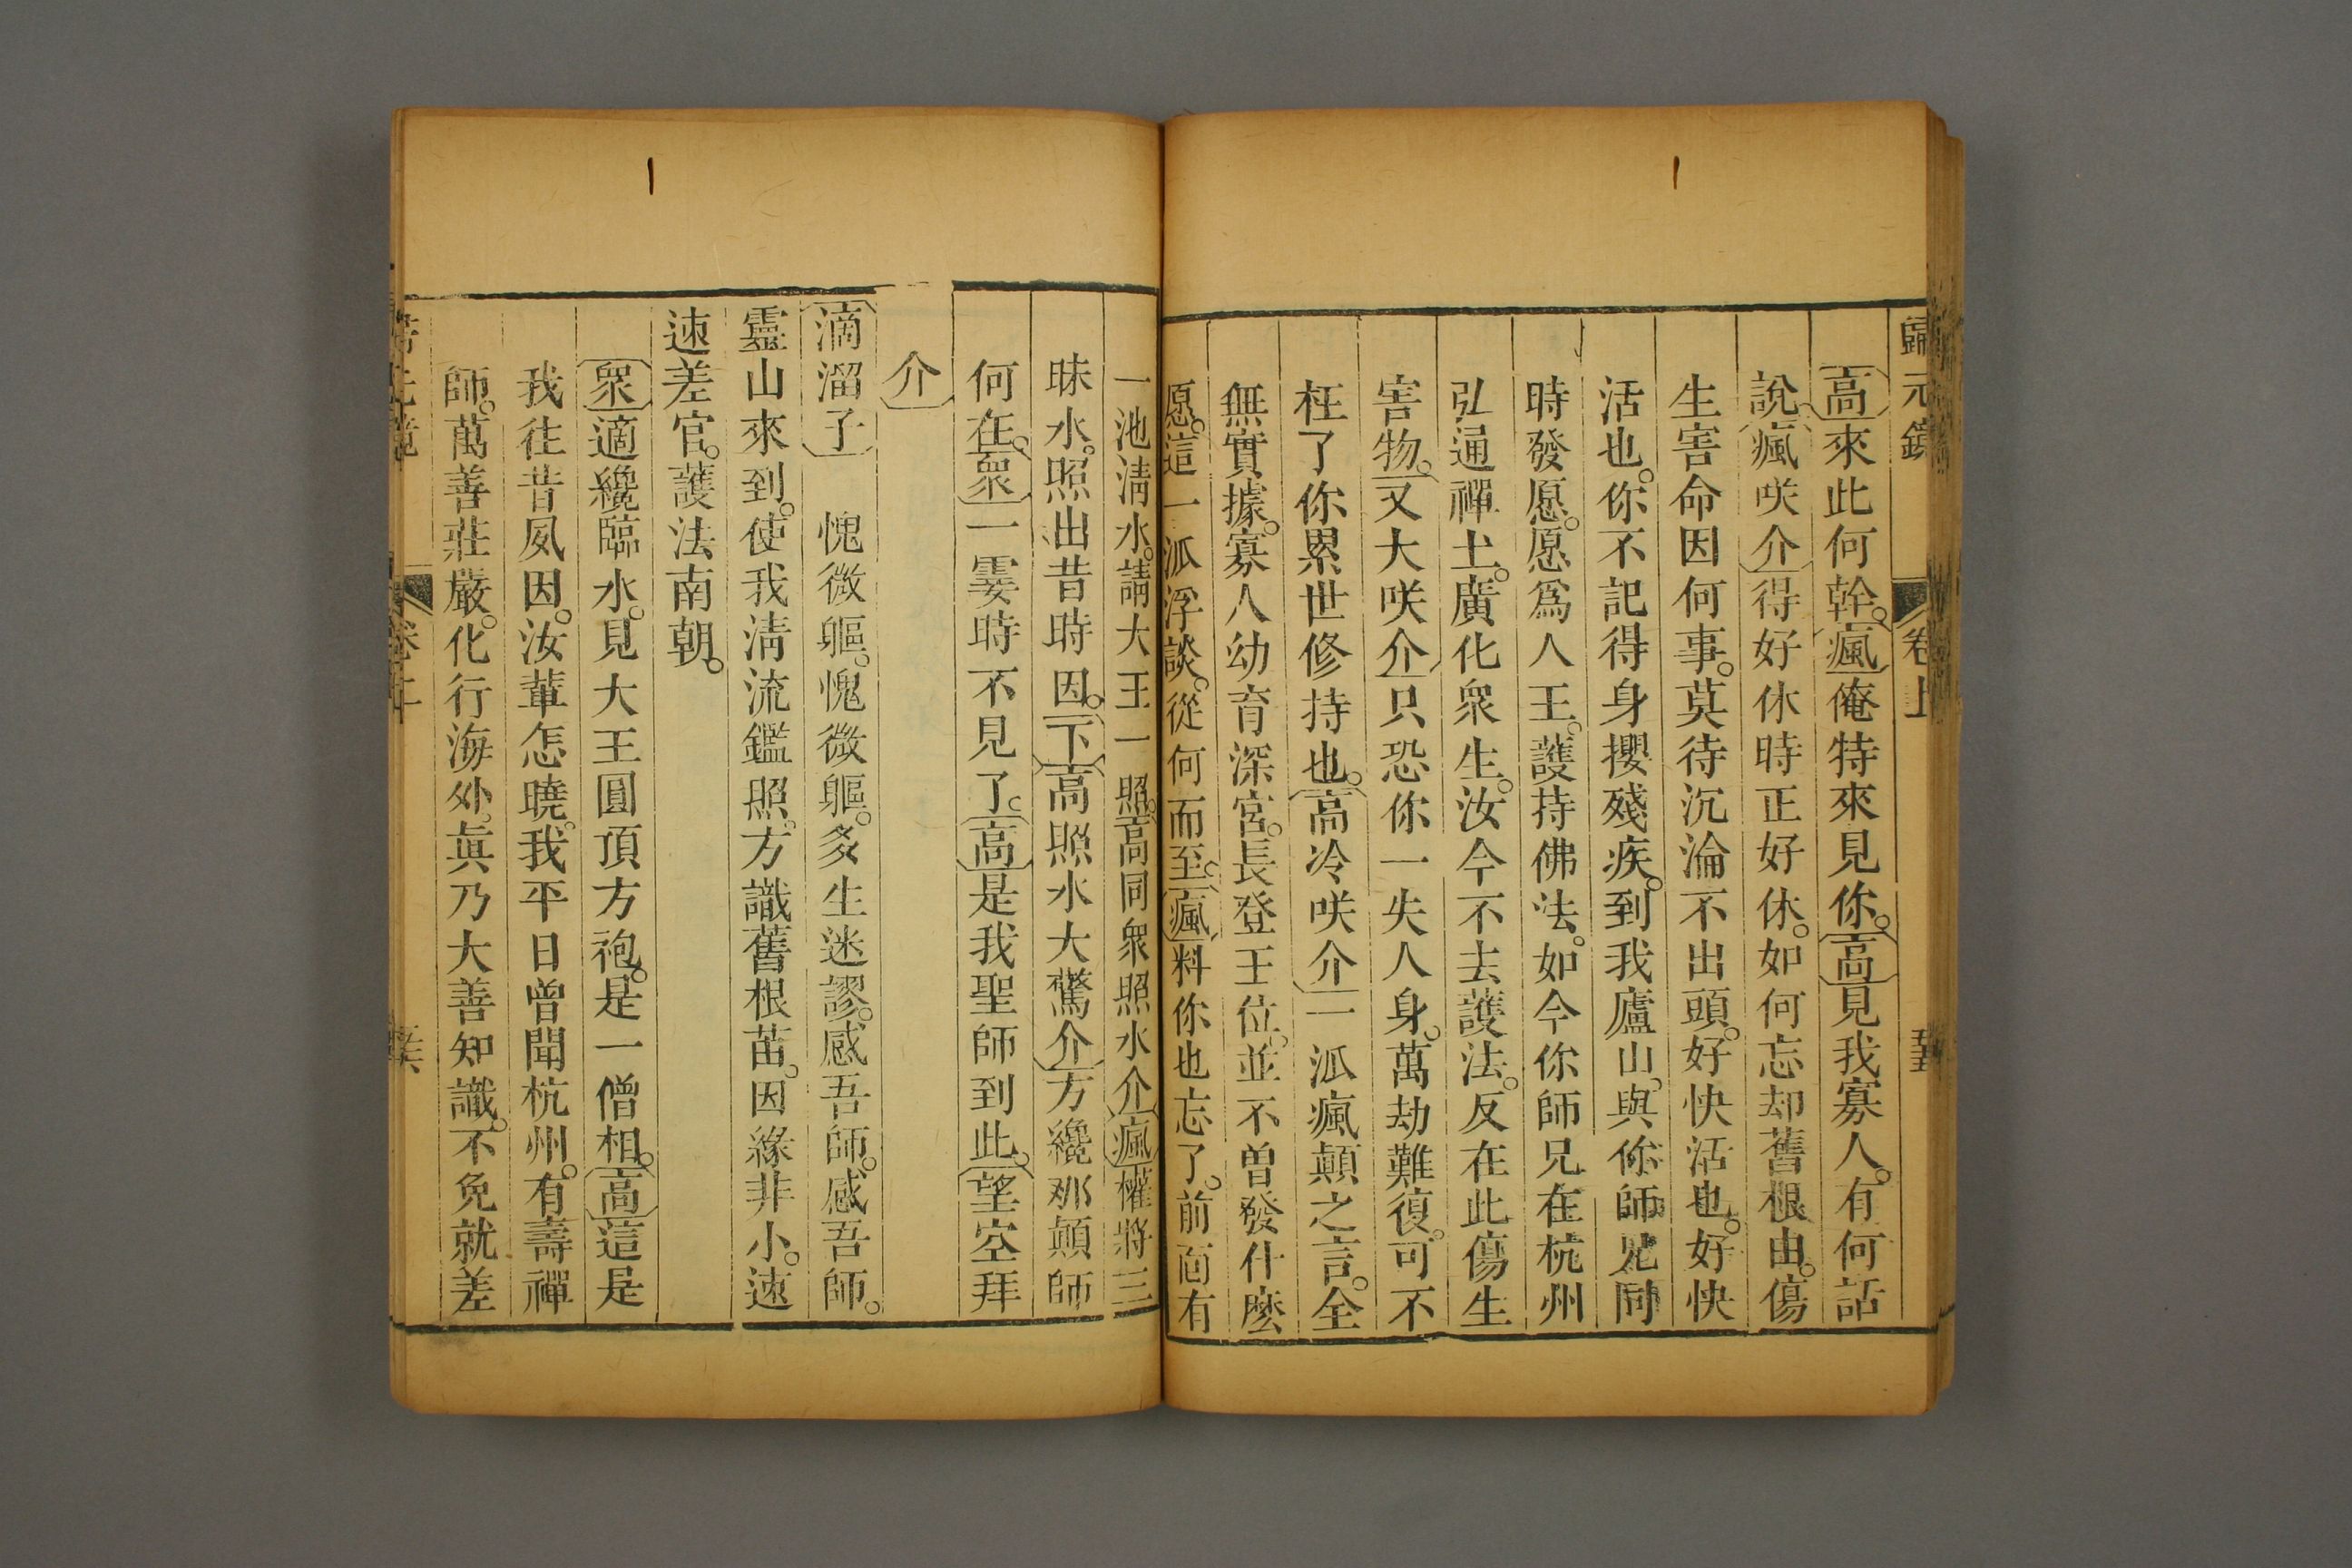 歸元鏡 卷上
高來此何幹。瘋俺特來見你。高見我寡人。有何話
說瘋咲介得好休時正好休。如何忘却舊根由。傷
生害命因何事。莫待沉淪不出頭。好快活也。好快
活也。你不記得身攖殘疾。到我廬山。與你師兄同
時發愿。愿爲人王。護持佛法。如今你師兄在杭州
弘通禪土。廣化衆生。汝今不去護法。反在此傷生
害物。又大咲介只恐你一失人身。萬劫難復。可不
枉了你累世修持也。高冷咲介一泒瘋顛之言。全
無實據。寡人幼育深宮。長登王位。並不曾發什麽
愿。這一泒浮談。從何而至。瘋料你也忘了。前面有
一池淸水。請大王一照。高同衆照水介瘋權將三
昧水。照出昔時因。下高照水大驚介方纔那顛師
何在。衆一霎時不見了。高是我聖師到此。望空拜
介
滴溜子 愧微軀。愧微軀。多生迷謬。感吾師。感吾師。
靈山來到。使我淸流鑑照。方識舊根苗。因緣非小。速
速差官。護法南朝。
衆適纔臨水。見大王圓頂方袍。是一僧相。高這是
我徃昔夙因。汝輩怎曉。我平日曾聞杭州。有壽禪
師。萬善莊嚴。化行海外。眞乃大善知識。不免就差